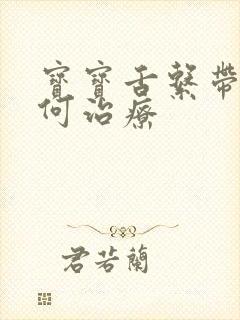 寶寶舌繫帶
何治療
君若蘭